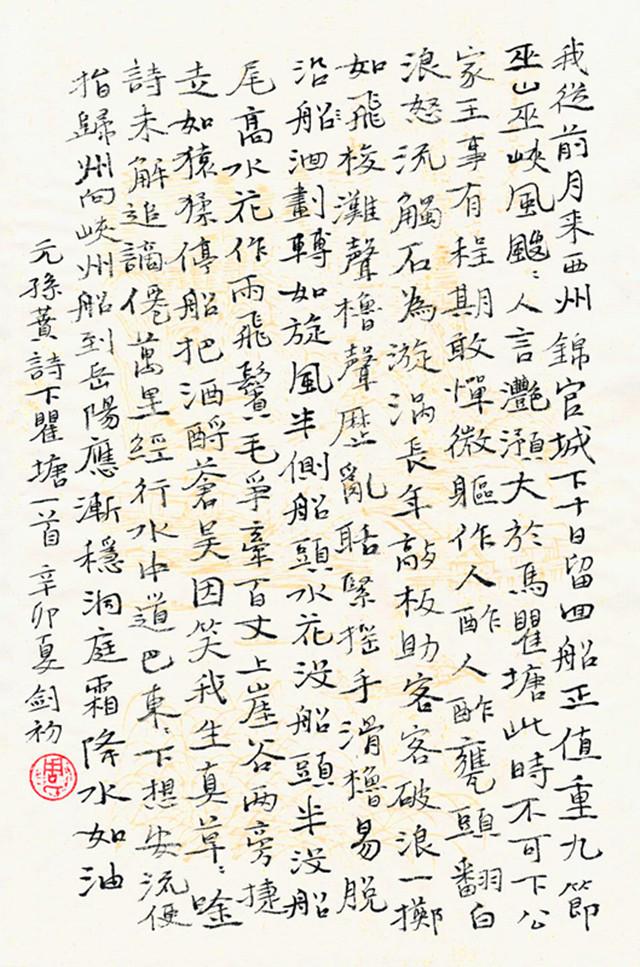 我從前月来西州錦官城下十日留回船正值重九節
巫山巫峽風颼〻人言灩澦大於馬瞿塘此時不可下公
家王事有程期敢憚微軀作人酢人酢甕頭翻白
浪怒流觸石為漩渦長年敲板助客客破浪一擲
如飛梭灘聲櫓聲歷亂聒緊搖手滑櫓易脱
沿船洄劃轉如旋風半側船頭水花没船頭半没船
尾高水花作雨飛鬢毛爭牽百丈上崖谷兩旁捷
走如猿猱停船把酒酹蒼昊因笑我生真草〻唫
詩未解追謫僊萬里經行水中道巴東〻下想安流便
指歸州向峽州船到岳陽應漸穩洞庭霜降水如油
元孫蕡詩下瞿塘一首 辛卯夏劍初